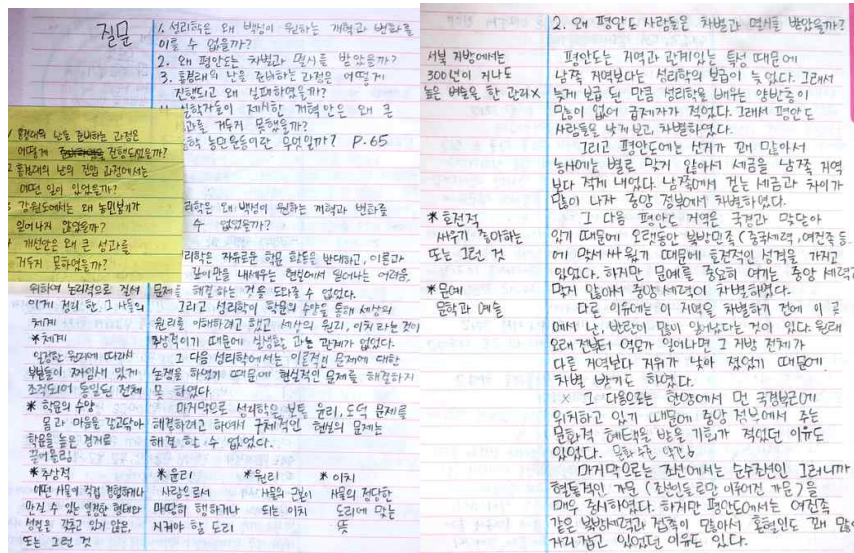 질문
1. 성리학은 왜 백성이 원하는 개혁과 변화를
이룰 수 없을까?
2. 왜 평안도는 차별과 멸시를 받았을까?
3. 홍경래의 난을 준비하는 과정은 어떻게
진행되고 왜 실패하였을까?
실학자들이 제시한 개혁안은 왜 큰
성과를 거두지 못했을까?
농민운동이란 무엇일까? P.65
홍경래의 난을 준비하는 과정은
어떻게 진행되었을까?
2 홍경래의 난의 진압 과정에서는
어떤 일이 있었을까?
3 강원도에서는 왜 농민봉기가
일어나지 않았을까?
4 개선안은 왜 큰 성과를
거두지 못하였을까?
성리학은 왜 백성이 원하는 개혁과 변화를
수 없었을까?
성리학은 자유로운 학문 활동을 반대하고, 이론과
깊이만을 내세우는 현실에서 일어나는 어려움,
문제를 해결하는 것을 도와줄 수 없었다.
그리고 성리학이 학문의 수양을 통해 세상의
원리를 이해하려고 했고 세상의 원리, 이치라는 것이
추상적이기 때문에 실생활과는 관계가 없었다.
그 다음 성리학에서는 이론적인 문제에 대한
논쟁을 하였기 때문에 현실적인 문제를 해결하지
못 하였다.
마지막으로 성리학은 보통 윤리, 도덕 문제를
해결하려고 하여서 구체적인 현실의 문제는
해결 할 수 없었다.
위하여 논리적으로 질서
있게 정리 한 그 사물의
체계
* 체계
일정한 원리에 따라서
부분들이 짜임새 있게
조직되어 통일된 전체
* 학문의 수양
몸과 마음을 갈고닦아
학문을 높은 경지로
끌어올림
* 추상적
어떤 사물이 직접 경험하거나
만질 수 있는 일정한 형태와
성질을 갖추고 있지 않은,
또는 그런 것
* 윤리
사람으로서
마땅히 행하거나
지켜야 할 도리
* 원리
사물의 근본이
되는 이치
* 이치
사물의 정당한
도리에 맞는
뜻
2. 왜 평안도 사람들은 차별과 멸시를 받았을까?
서북 지방에서는
300년이 지나도
높은 벼슬을 한 관리 X
평안도는 지역과 관계있는 특성 때문에
남쪽 지역보다는 성리학의 보급이 늦었다. 그래서
늦게 보급 된 만큼 성리학을 배우는 양반층이
많이 없어 급제자가 적었다. 그래서 평안도
사람들을 낮게 보고, 차별하였다.
그리고 평안도에는 산지가 꽤 많아서
농사에는 별로 맞지 않아서 세금을 남쪽 지역
보다 적게 내었다. 남쪽에서 걷는 세금과 차이가
많이 나자 중앙 정부에서 차별하였다.
* 호전적
싸우기 좋아하는
또는 그런 것
그 다음 평안도 지역은 국경과 맞닿아
있기 때문에 오랫동안 북방민족 (중국세력, 여진족 등.
에 맞서 싸웠기 때문에 호전적인 성격을 가지고
있었다. 하지만 문예를 중요히 여기는 중앙 세력과
맞지 않아서 중앙 세력이 차별하였다.
* 문예
문학과 예술
다른 이유에는 이 지역을 차별하기 전에 이 곳
에서 난, 반란이 많이 일어났다는 것이 있다. 원래
오래 전부터 역모가 일어나면 그 지방 전체가
다른 지역보다 지위가 낮아 졌었기 때문에
차별 받기도 하였다.
X 그 다음으로는 한양에서 먼 국경부근에
위치하고 있기 때문에 중앙 정부에서 주는
문화적 혜택을 받을 기회가 적었던 이유도
있었다.
마지막으로는 조선에서는 순수조선인 그러니까
혈통적인 가문 (조선인들로만 이루어진 가문)을
매우 중시하였다. 하지만 평안도에서는 여진족
같은 북방세력과 접촉이 많아서 혼혈인도 꽤 많이
자리 잡고 있었던 이유도 있다.